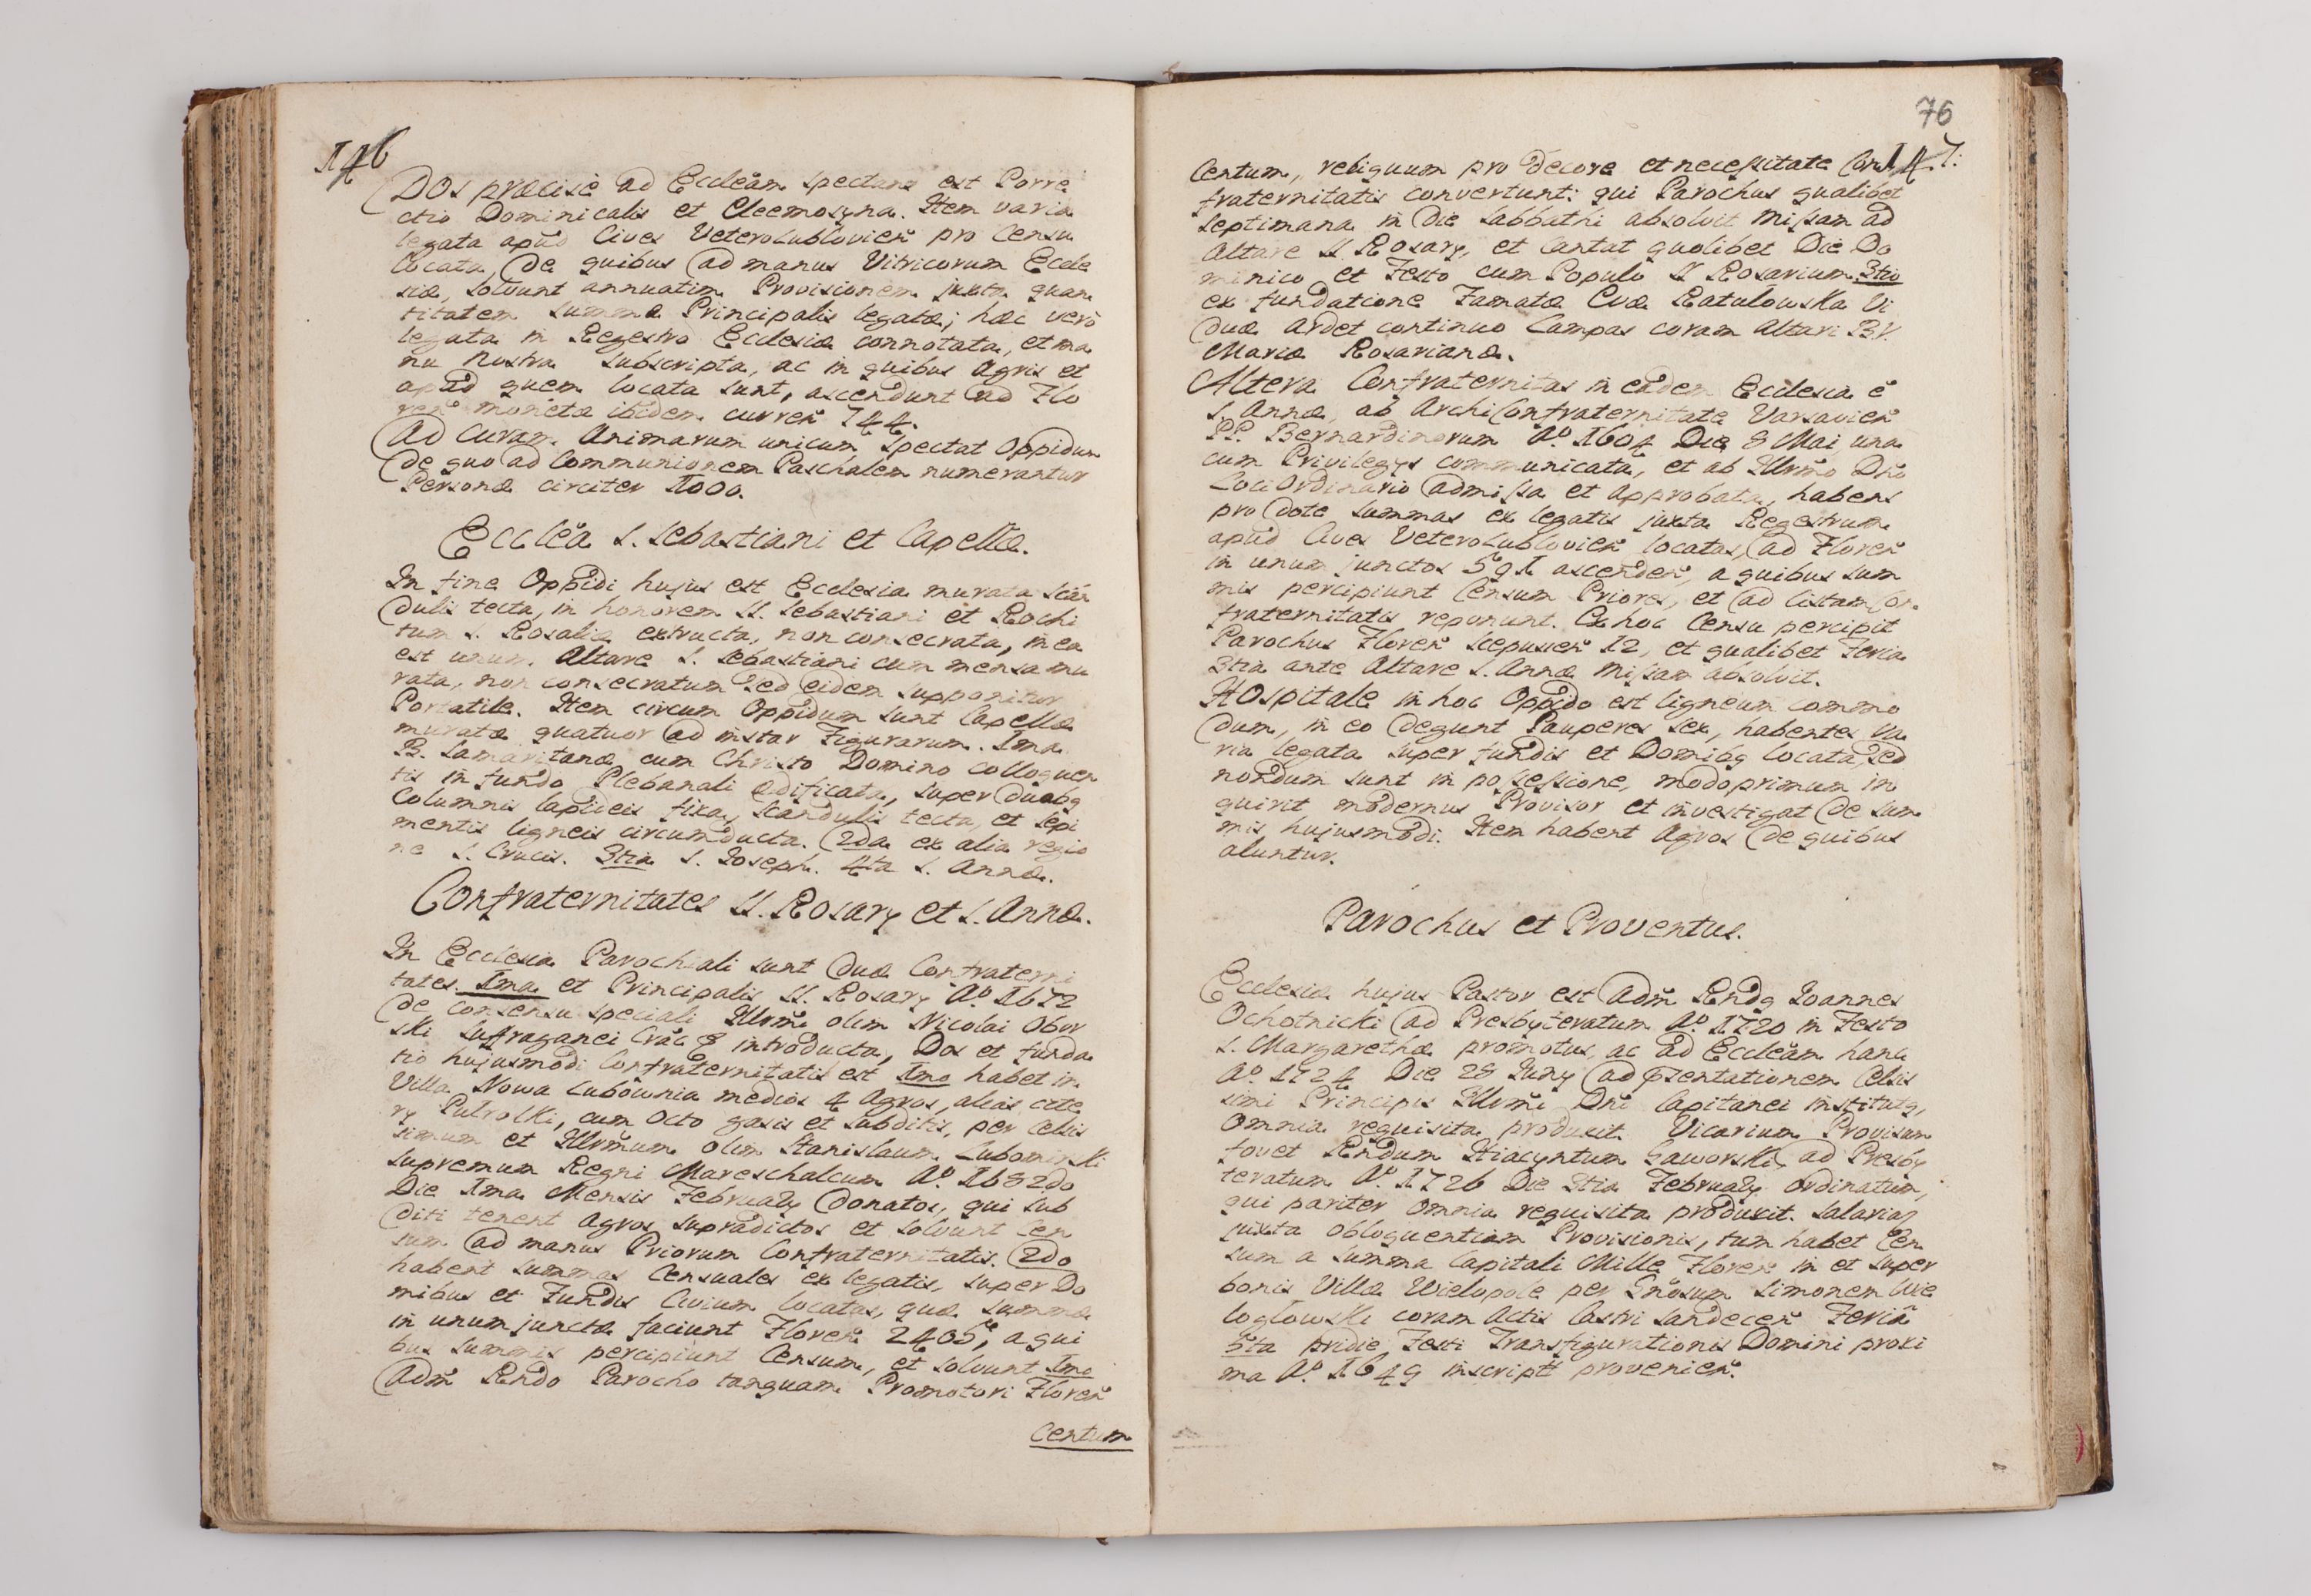 146
Dos præcisè ad Eccleãm spectans est Porre
ctio Dominicalis et Eleemosyna. Item varia
legata apud Cives Veterolublovien̄ pro Censu
locata, de quibus ad manus Vitricorum Eccle
siæ, solvunt annuatim Provisionem juxta quan
titatem summæ Principalis legatæ; hæc verò
legata in Regestro Ecclesiæ connotata, et ma
nu nostra subscripta, ac in quibus Agris et
apud quem locata sunt, ascendunt ad Flo
ren̄ monetæ ibidem curren̄ 744.
Ad Curam Animarum unicum spectat Oppidum
de quo ad Communionem Paschalem numerantur
Personæ circiter 1000.
Eccleã S. Sebastiani et Capellæ.
In fine Oppidi hujus est Ecclesia murata scan
dulis tecta, in honorem SS. Sebastiani et Rochi
tum S. Rosaliæ extructa, non consecrata, in ea
est unum Altare S. Sebastiani cum mensa mu
rata, non consecratum sed eidem supponitur
Portatile. Item circum Oppidum sunt Capellæ
muratæ quatuor ad instar Figurarum. Ima
B. Samaritanæ cum Christo Domino colloquen
tis in fundo Plebanali ædificata, super duabq
Columnis lapideis fixa, scandulis tecta, et sepi
mentis ligneis circumducta. 2da ex alia regio
ne S. Crucis. 3tia S. Joseph. 4ta S. Annæ.
Confraternitates SS. Rosarÿ et S. Annæ.
In Ecclesia Parochiali sunt duæ Confraterni
tates. Ima et Principalis SS. Rosarÿ Aº 1672
de Consensu speciali Illrm̄i olim Nicolai Obor
ski Suffraganei Crac̄ introducta, Dos et funda
tio hujusmodi Confraternitatis est Imo habet in
Villa Nowa Lubownia medios 4 Agros, alias czte
ry Pulrolki, cum octo gazis et subditis, per Celsis
simum et Illrm̄um olim Stanislaum Lubomirski
Supremum Regni Mareschalcum Aº 1682do
Die Ima Mensis Februarÿ donatos, qui sub
diti tenent Agros supradictos et solvunt Cen
sum ad manus Priorum Confraternitatis. 2do
habent summas Censuales ex legatis, super Do
mibus et Fundis Civium locatas, quæ summæ
in unum junctæ faciunt Floren̄ 2405, a qui
bus summis percipiunt Censum, et solvunt Imo
Adm̄ Rndo Parocho tanquam Promotori Floren̄
Centum
76
147:
Centum, reliquum pro decore et necessitate Con
fraternitatis convertunt: qui Parochus qualibet
septimana in die Sabbathi absolvit Missam ad
Altare SS. Rosarÿ, et Cantat quolibet Die Do
minico et Festo cum Populo SS Rosarium. 3tio
ex fundatione Famatæ Evæ Ratulowska Vi
duæ ardet continuo Lampas coram Altari B.V.
Mariæ Rosarianæ.
Altera Confraternitas in eadem Ecclesia ẽ
S. Annæ, ab ArchiConfraternitate Varsavien̄
PP. Bernardinorum Aº 1604 Die 8 Mai una
cum Privilegÿs communicata, et ab Illrm̄o Dn̄o
Loci Ordinario admissa et approbata, habens
pro dote summas ex legatis juxta Regestrum
apud Cives Veterolublovien̄ locatas, ad Floren̄
in unum junctos 591 ascenden̄, a quibus sum
mis percipiunt Censum Priores, et ad Cistam Con
fraternitatis reponunt. Ex hoc Censu percipit
Parochus Floren̄ Scepusien̄ 12, et qualibet Feria
3tia ante Altare S. Annæ Missam absolvit.
Hospitale in hoc Oppido est ligneum commo
dum, in eo degunt Pauperes sex, habentes va
ria legata super fundis et Domibq locata, sed
nondum sunt in possessione, modo primum in
quirit modernus Provisor et investigat de sum
mis hujusmodi. Item habent Agros de quibus
aluntur.
Parochus et Proventus.
Ecclesiæ hujus Pastor est Adm̄ Rndq Joannes
Ochotnicki ad Presbyteratum Aº 1720 in Festo
S. Margarethæ promotus, ac ad Eccleãm hanc
Aº 1724 Die 28 Junÿ ad p̄sentationem Celsis
simi Principis Illrm̄i Dn̄i Capitanei institutq,
omnia requisita produxit. Vicarium Provisum
fovet Rndum Hiacyntum Gaworski, ad Presby
teratum Aº 1726 Die 3tia Februarÿ ordinatum,
qui pariter omnia requisita produxit. Salariat
juxta obloquentiam Provisionis, tum habet Cen
sum a summa Capitali Mille Floren̄ in et super
bonis Villæ Wielopole per Gn̄osum Simonem Wie
loglowski coram Actis Castri Sandecen̄ Feria
5ta pridie Festi Transfigurationis Domini proxi
ma Aº 1649 inscript̄ provenien̄.